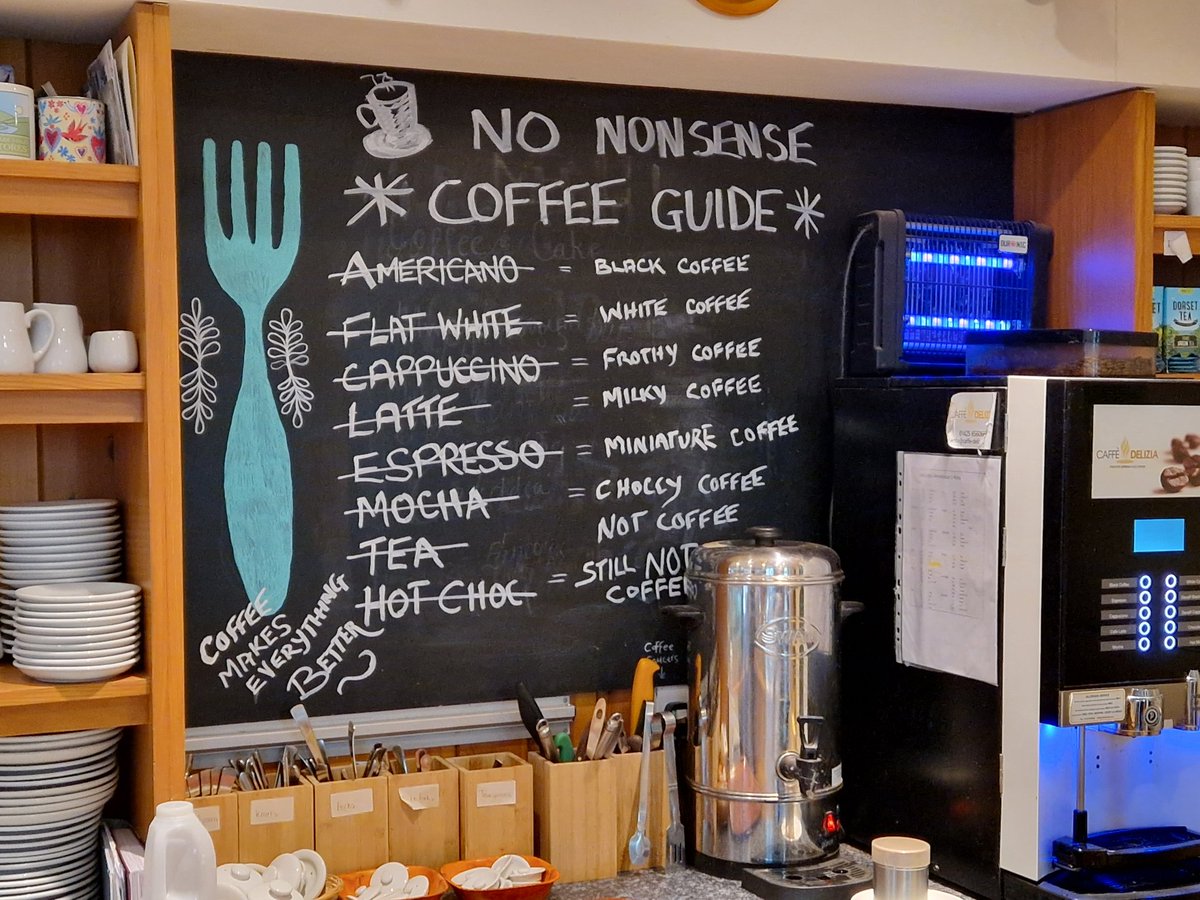 NO NONSENSE
COFFEE GUIDE
AMERICANO = BLACK COFFEE
FLAT WHITE = WHITE COFFEE
CAPPUCCINO = FROTHY COFFEE
LATTE = MILKY COFFEE
ESPRESSO = MINIATURE COFFEE
MOCHA = CHOCCY COFFEE
TEA NOT COFFEE
HOT CHOC = STILL NOT
COFFEE
COFFEE
MAKES
EVERYTHING
BETTER
Coffee
DORSET
TEA
CAFFÈ DELIZIA
CAFFÈ DELIZIA